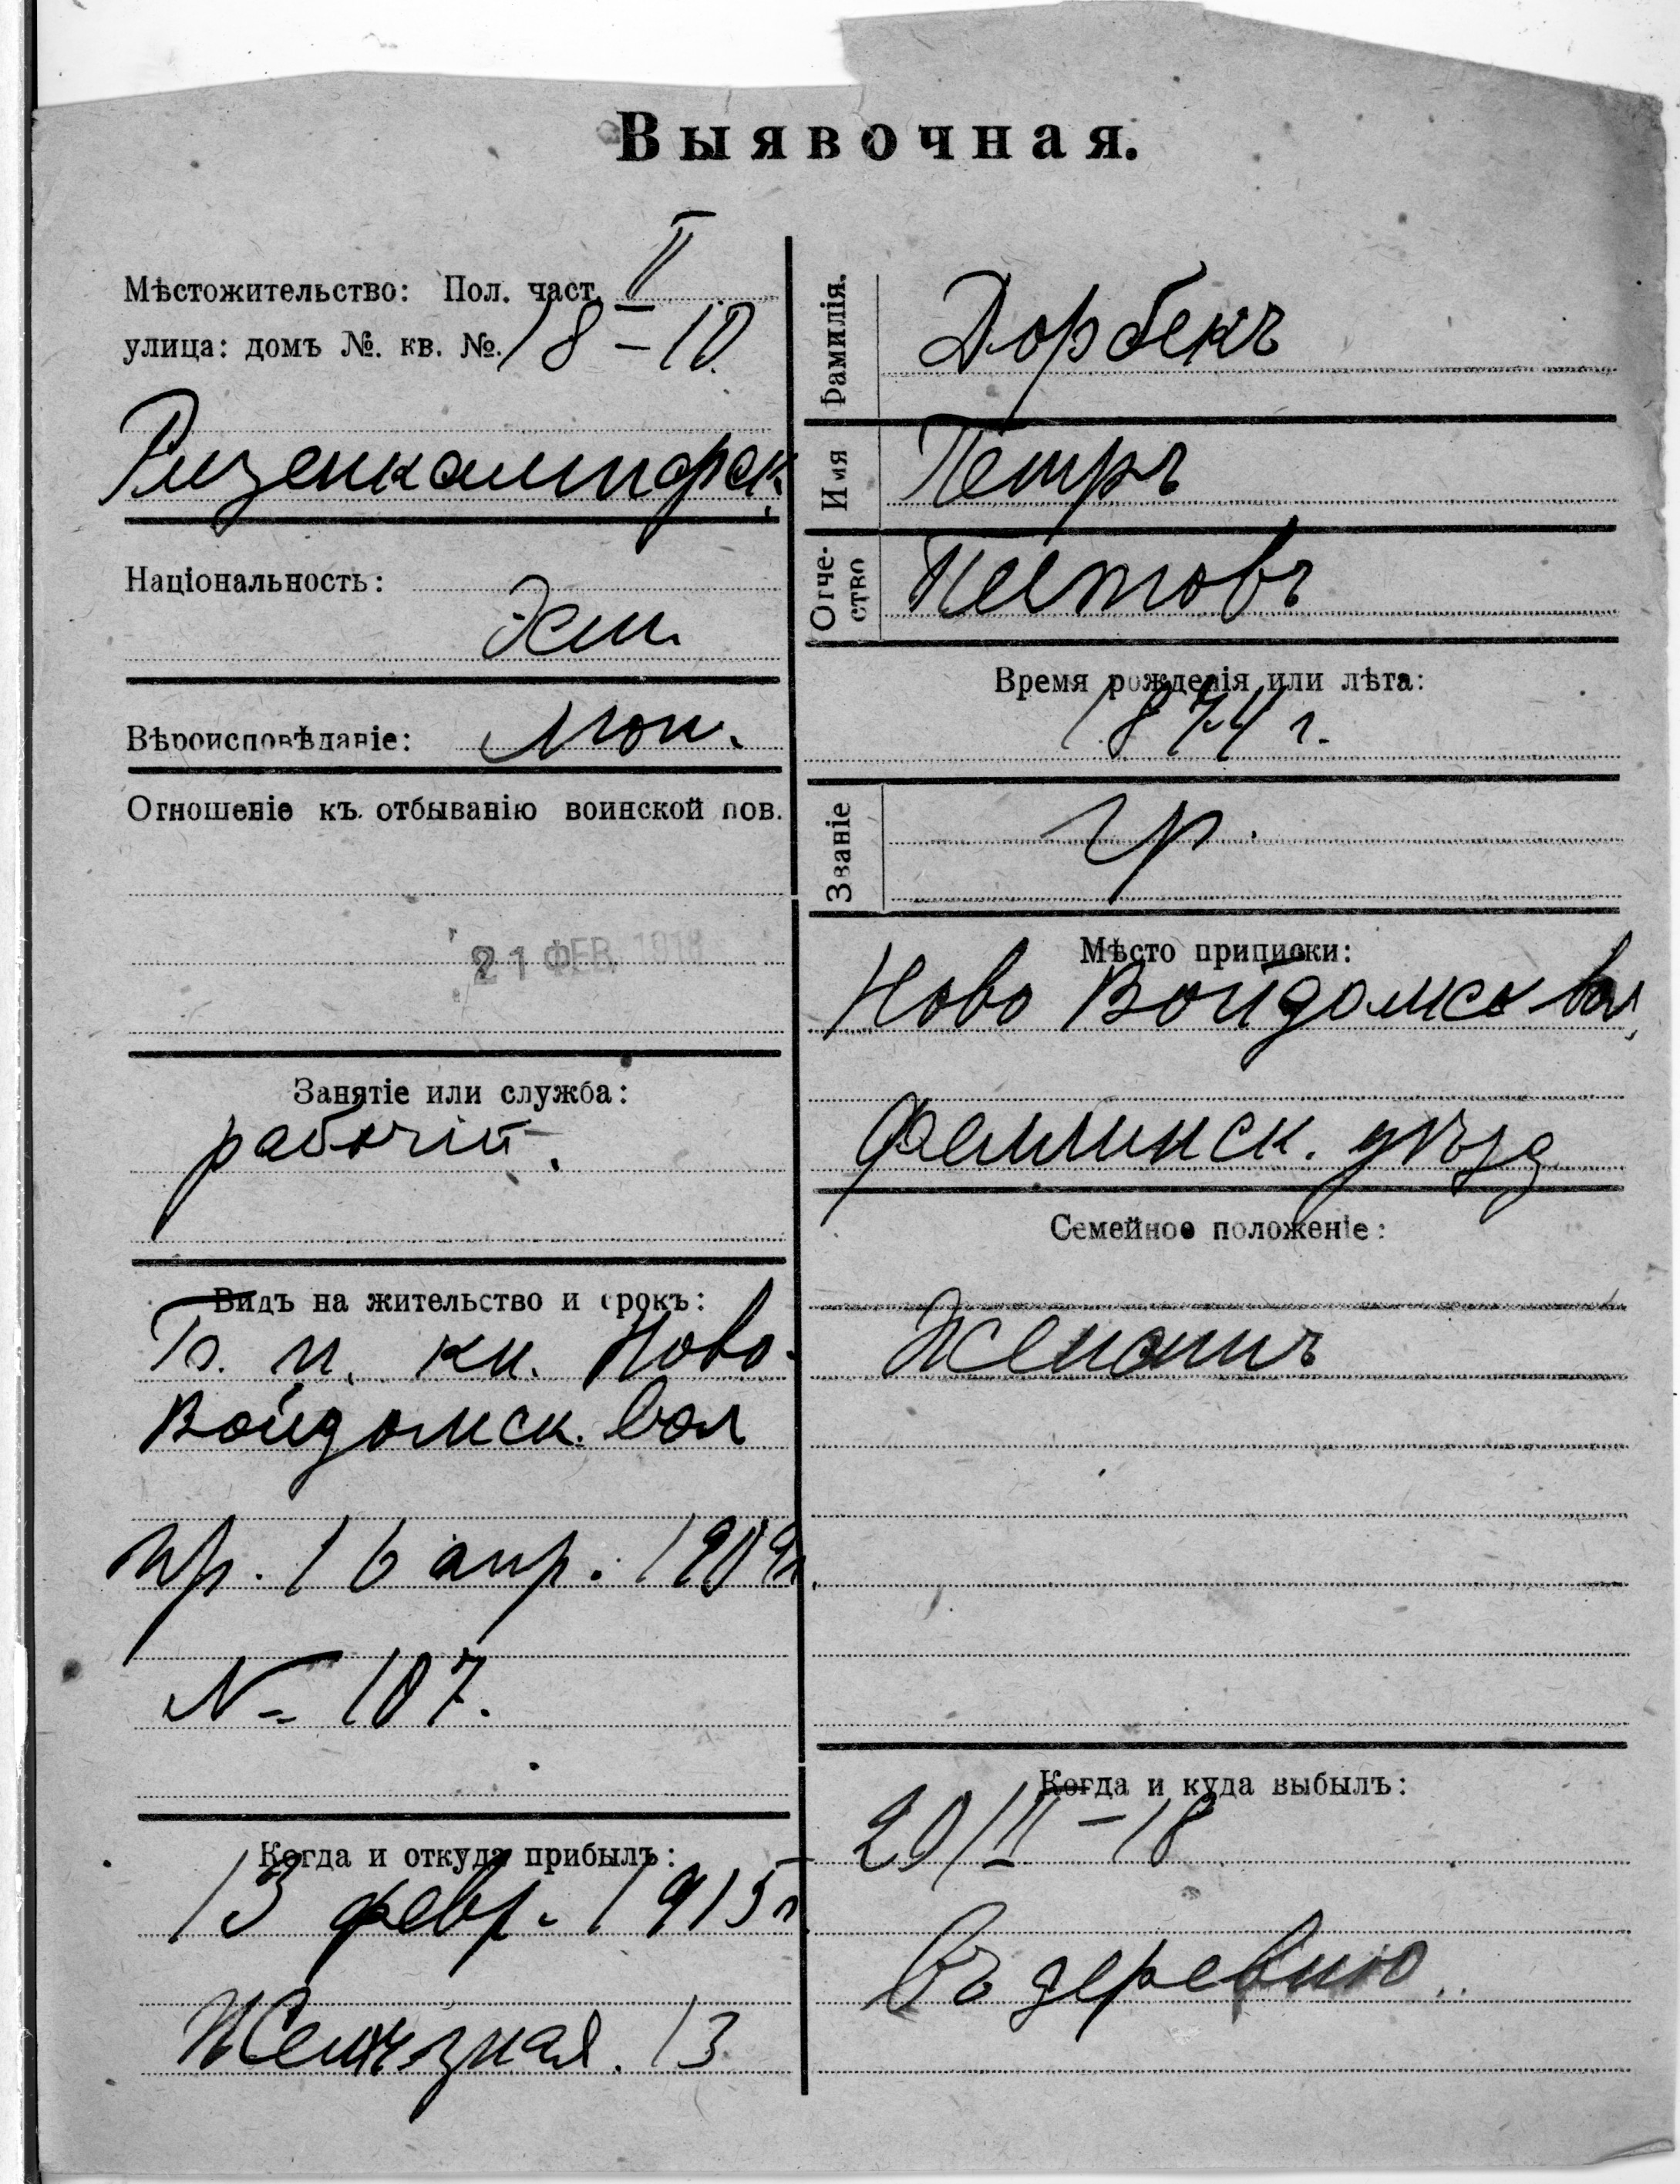 Выявочная.
Мѣстожительство: Пол. част. II
улица: домъ №. кв. №. 18 – 10.
Ризенкампфск.
Національность:
Эст.
Вѣроисповѣданіе: Лют.
Отношеніе къ отбыванію воинской пов.
21 ФЕВ. 1918
Занятіе или служба:
рабочій.
Видъ на жительство и срокъ:
п. кн. Ново-
Войдомск. вол
пр. 16 апр. 1909 г.
№ 107.
Когда и откуда прибылъ:
13 февр. 1915 г.
Желѣзная. 13
Фамилія.
Дорбекъ
Имя
Петръ
Отчество
Время рожденія или лѣта:
1874 г.
Званіе
кр.
Мѣсто приписки:
Ново Войдомск вол.
Феллинск. уѣзд
Семейное положеніе:
Женатъ
Когда и куда выбылъ:
20/II – 18
Въ деревню.